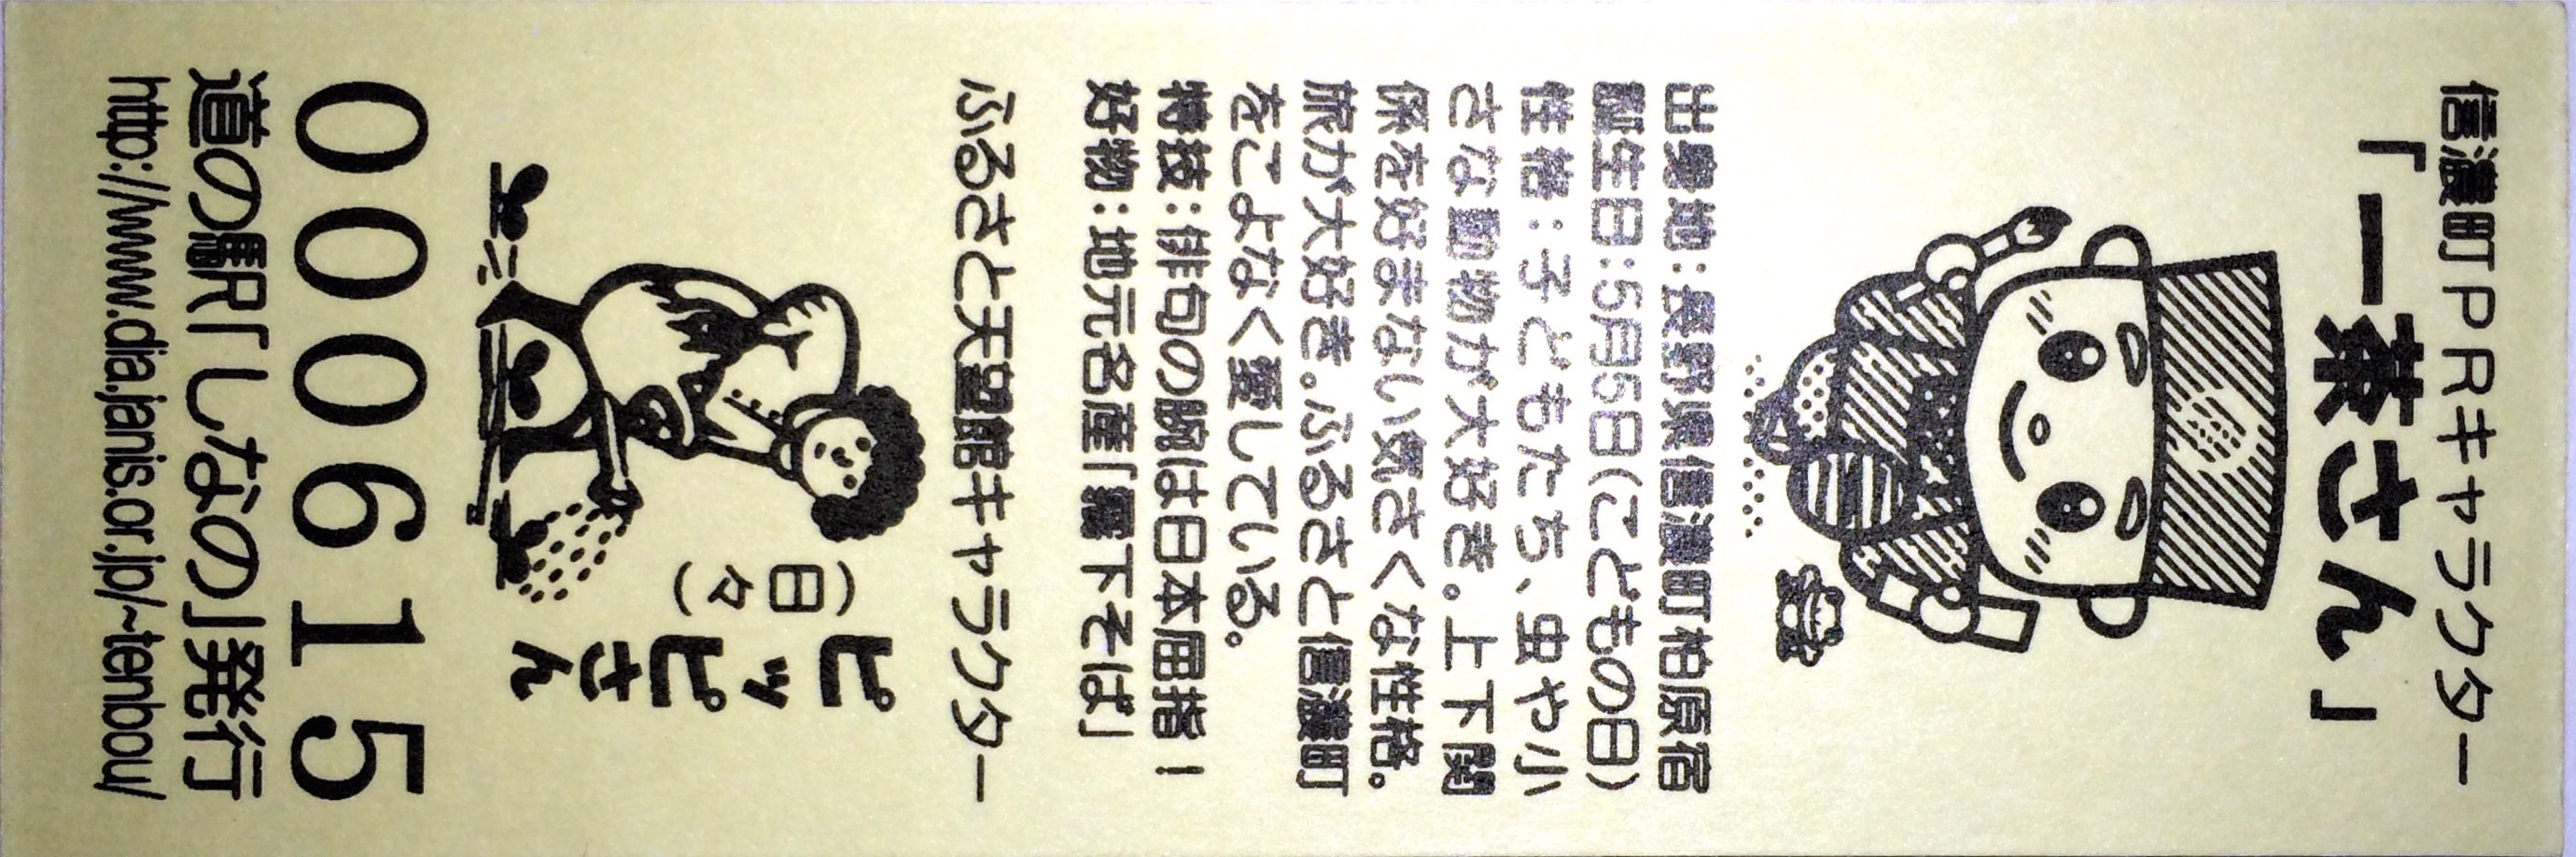 信濃町PRキャラクター
「一茶さん」
出身地:長野県信濃町柏原宿
誕生日:5月5日(こどもの日)
性格:子どもたち、虫や小
さな動物が大好き。上下関
係を好まない気さくな性格。
旅が大好き。ふるさと信濃町
をこよなく愛している。
特技:俳句の腕は日本屈指!
好物:地元名産「霧下そば」
ふるさと天望館キャラクター
(日々)
ピッピさん
000615
道の駅「しなの」発行
http://www.dia.janis.or.jp/~tenbou/